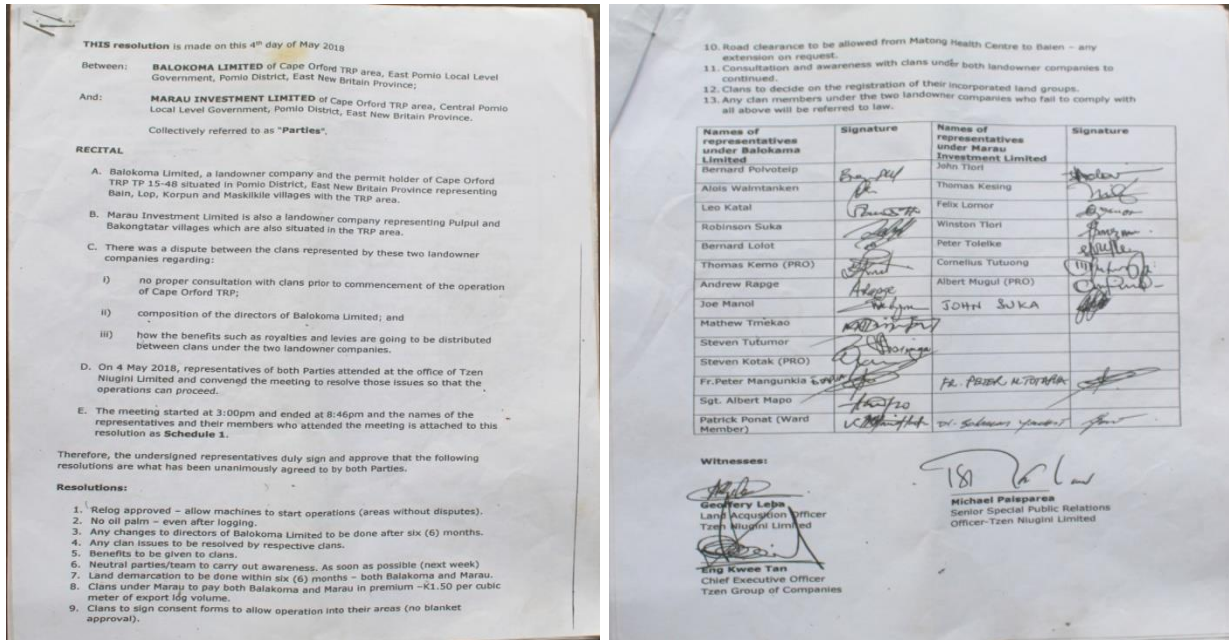 THIS resolution is made on this 4th day of May 2018
Between: BALOKOMA LIMITED of Cape Orford TRP area, East Pomio Local Level
Government, Pomio District, East New Britain Province;
And: MARAU INVESTMENT LIMITED of Cape Orford TRP area, Central Pomio
Local Level Government, Pomio District, East New Britain Province.
Collectively referred to as "Parties".
RECITAL
A. Balokoma Limited, a landowner company and the permit holder of Cape Orford
TRP TP 15-48 situated in Pomio District, East New Britain Province representing
Bain, Lop, Korpun and Maskilkile villages with the TRP area.
B. Marau Investment Limited is also a landowner company representing Pulpul and
Bakongtatar villages which are also situated in the TRP area.
C. There was a dispute between the clans represented by these two landowner
companies regarding:
i) no proper consultation with clans prior to commencement of the operation
of Cape Orford TRP;
ii) composition of the directors of Balokoma Limited; and
iii) how the benefits such as royalties and levies are going to be distributed
between clans under the two landowner companies.
D. On 4 May 2018, representatives of both Parties attended at the office of Tzen
Niugini Limited and convened the meeting to resolve those issues so that the
operations can proceed.
E. The meeting started at 3:00pm and ended at 8:46pm and the names of the
representatives and their members who attended the meeting is attached to this
resolution as Schedule 1.
Therefore, the undersigned representatives duly sign and approve that the following
resolutions are what has been unanimously agreed to by both Parties.
Resolutions:
1. Relog approved – allow machines to start operations (areas without disputes).
2. No oil palm – even after logging.
3. Any changes to directors of Balokoma Limited to be done after six (6) months.
4. Any clan issues to be resolved by respective clans.
5. Benefits to be given to clans.
6. Neutral parties/team to carry out awareness. As soon as possible (next week)
7. Land demarcation to be done within six (6) months – both Balakoma and Marau.
8. Clans under Marau to pay both Balakoma and Marau in premium –K1.50 per cubic
meter of export log volume.
9. Clans to sign consent forms to allow operation into their areas (no blanket
approval).
10. Road clearance to be allowed from Matong Health Centre to Balen – any
extension on request.
11. Consultation and awareness with clans under both landowner companies to
continued.
12. Clans to decide on the registration of their incorporated land groups.
13. Any clan members under the two landowner companies who fail to comply with
all above will be referred to law.
Names of Signature Names of Signature
representatives representatives
under Balokama under Marau
Limited Investment Limited
Bernard Polvoteip John Tlori
Alois Walmtanken Thomas Kesing
Leo Katal Felix Lomor
Robinson Suka Winston Tlori
Bernard Lolot Peter Tolelke
Thomas Kemo (PRO) Cornelius Tutuong
Andrew Rapge Albert Mugul (PRO)
Joe Manol JOHN SUKA
Mathew Tmekao
Steven Tutumor
Steven Kotak (PRO)
Fr.Peter Mangunkia FR. PETER M.
Sgt. Albert Mapo
Patrick Ponat (Ward
Member)
Witnesses:
Geoffery Leba
Land Acqusition Officer
Tzen Niugini Limited
Michael Paisparea
Senior Special Public Relations
Officer-Tzen Niugini Limited
Eng Kwee Tan
Chief Executive Officer
Tzen Group of Companies